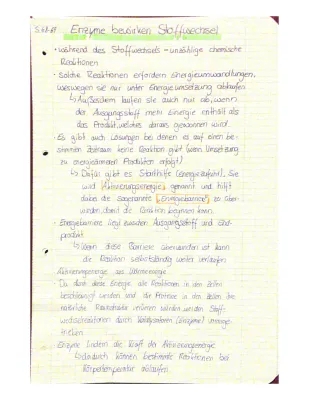 S.68-69 Enzyme bewirken Stoffwechsel
• während des Stoffwechsels - unzählige chemische
Reaktionen
• Solche Reaktionen erfordern Energieumwandlungen,
weswegen sie nur unter Energieumsetzung ablaufen
↳ Außerdem laufen sie auch nur ab, wenn
der Ausgangsstoff mehr Energie enthält als
das Produkt, welches daraus gewonnen wird.
• Es gibt auch Lösungen bei denen es auf einen be-
stimmten Zeitraum keine Reaktion gibt (wenn Umsetzung
zu energieärmeren Produkten erfolgt)
↳ Dafür gibt es Starthilfe (Energiezufuhr). Sie
wird Aktivierungsenergie genannt und hilft
dabei die sogenannte Energiebarriere zu über-
winden, damit die Reaktion beginnen kann.
• Energiebarriere liegt zwischen Ausgangsstoff und End-
produkt
↳ Wenn diese Barriere überwunden ist kann
die Reaktion selbstständig weiter verlaufen
Aktivierungsenergie aus Wärmeenergie
Da durch diese Energie alle Reaktionen in den Zellen
beschleunigt werden und die Proteine in den Zellen ihre
natürliche Raumstruktur verlieren würden werden Stoff-
wechselreaktionen durch Katalysatoren (Enzyme)
trieben
Enzyme lindern die Kraft der Aktivierungsenergie
↳ dadurch können bestimmte Reaktionen bei
Körpertemperatur ablaufen